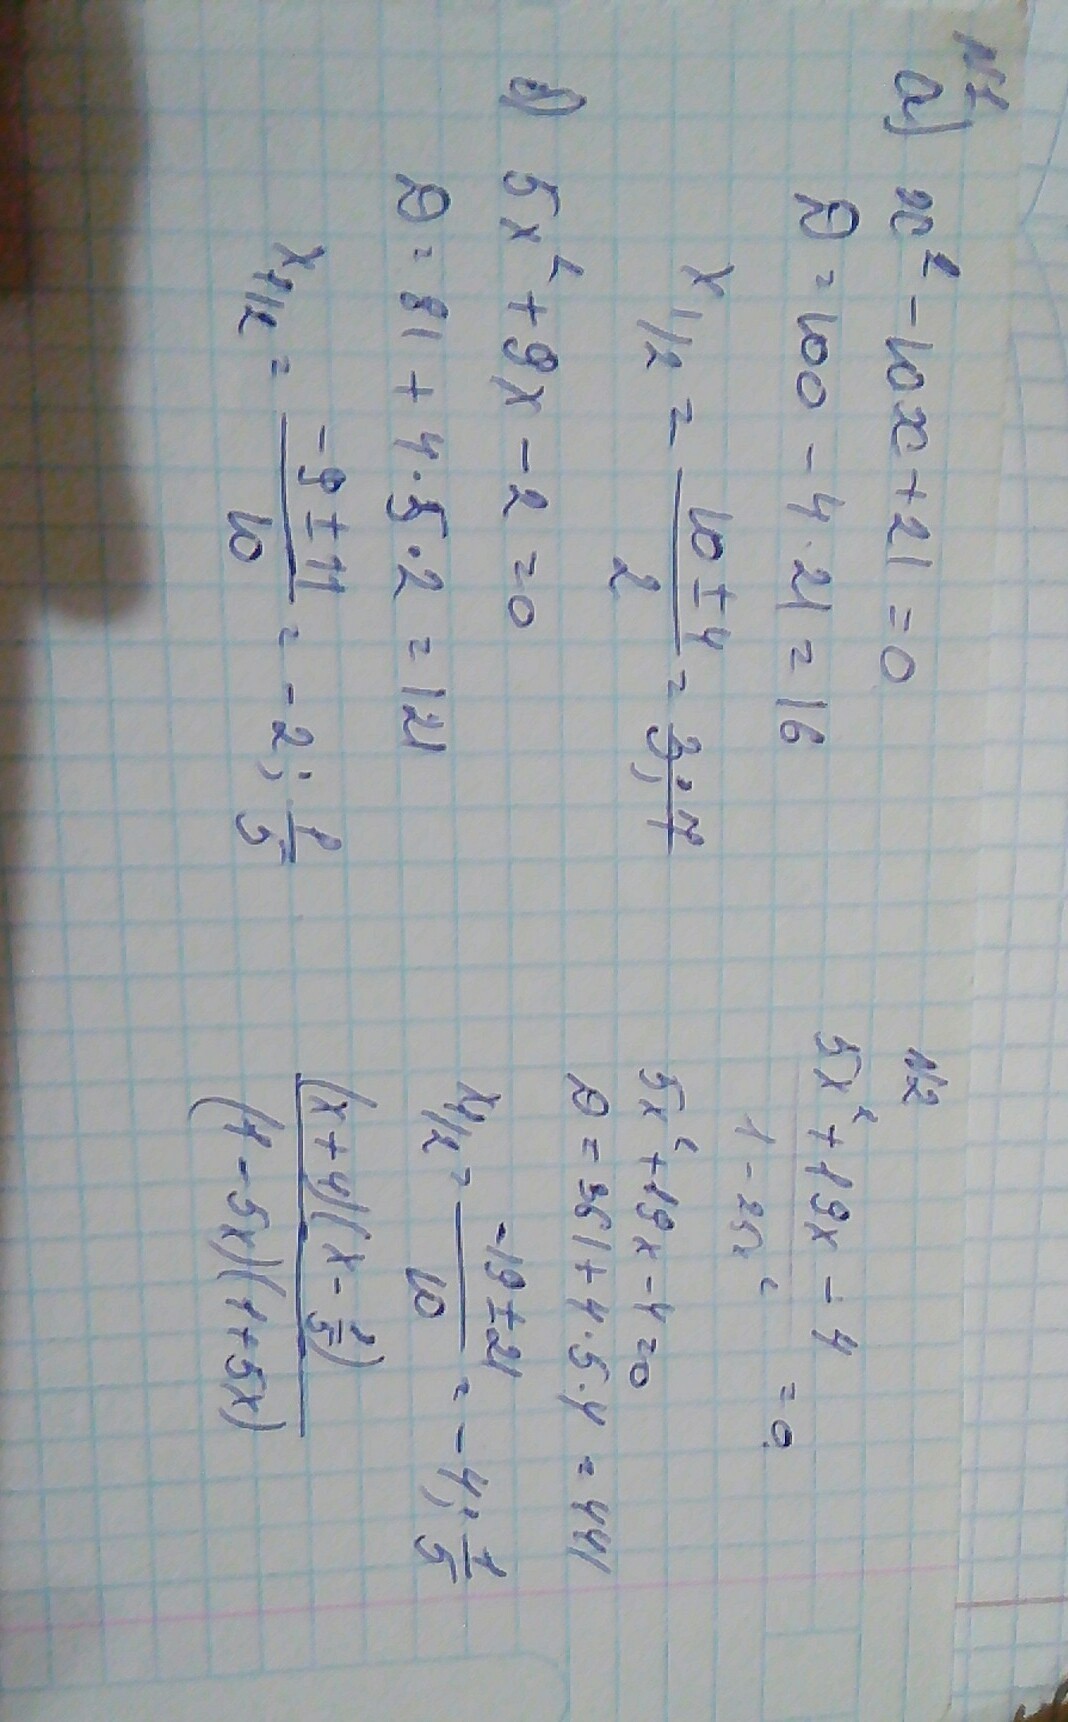 №1
а) x² - 10x + 21 = 0
D = 100 - 4 · 21 = 16
x1/2 = (10 ± 4)/2 = 3; 7
б) 5x² + 9x - 2 = 0
D = 81 + 4 · 5 · 2 = 121
x1/2 = (-9 ± 11)/10 = -2; 1/5
№2
(5x² + 19x - 4)/(1 - 25x²) = 0
5x² + 19x - 4 = 0
D = 361 + 4 · 5 · 4 = 441
x1/2 = (-19 ± 21)/10 = -4; 1/5
(x + 4)(x - 1/5)
(1 - 5x)(1 + 5x)